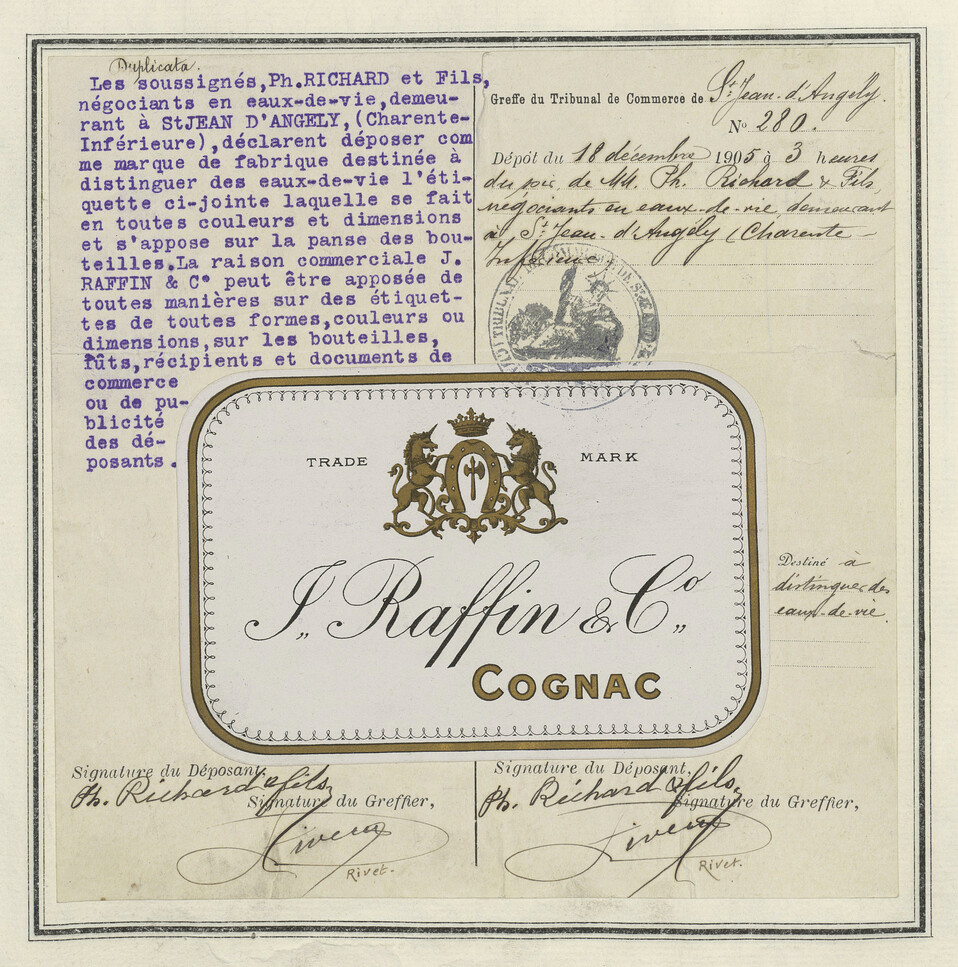 Duplicata.
Les soussignés,Ph.RICHARD et Fils,
négociants en eaux-de-vie,demeu-
rant à StJEAN D'ANGELY,(Charente-
Inférieure),déclarent déposer com
me marque de fabrique destinée à
distinguer des eaux-de-vie l'éti-
quette ci-jointe laquelle se fait
en toutes couleurs et dimensions
et s'appose sur la panse des bou-
teilles.La raison commerciale J.
RAFFIN & C° peut être apposée de
toutes manières sur des étiquet-
tes de toutes formes,couleurs ou
dimensions,sur les bouteilles,
fûts,récipients et documents de
commerce
ou de pu-
blicité
des dé-
posants.
Greffe du Tribunal de Commerce de St Jean-d'Angély.
N° 280.
Dépôt du 18 décembre 1905 à 3 heures
du soir, de MM. Ph. Richard & Fils
négociants en eaux-de-vie, demeurant
à St Jean-d'Angély (Charente-
Inférieure)
TRIBUNAL DE COMMERCE DE ST JEAN D'
TRADE MARK
J. Raffin & Co
COGNAC
Destiné à
distinguer des
eaux-de-vie.
Signature du Déposant,
Ph. Richard & fils
Signature du Greffier,
Rivet.
Signature du Déposant,
Ph. Richard & fils
Signature du Greffier,
Rivet.